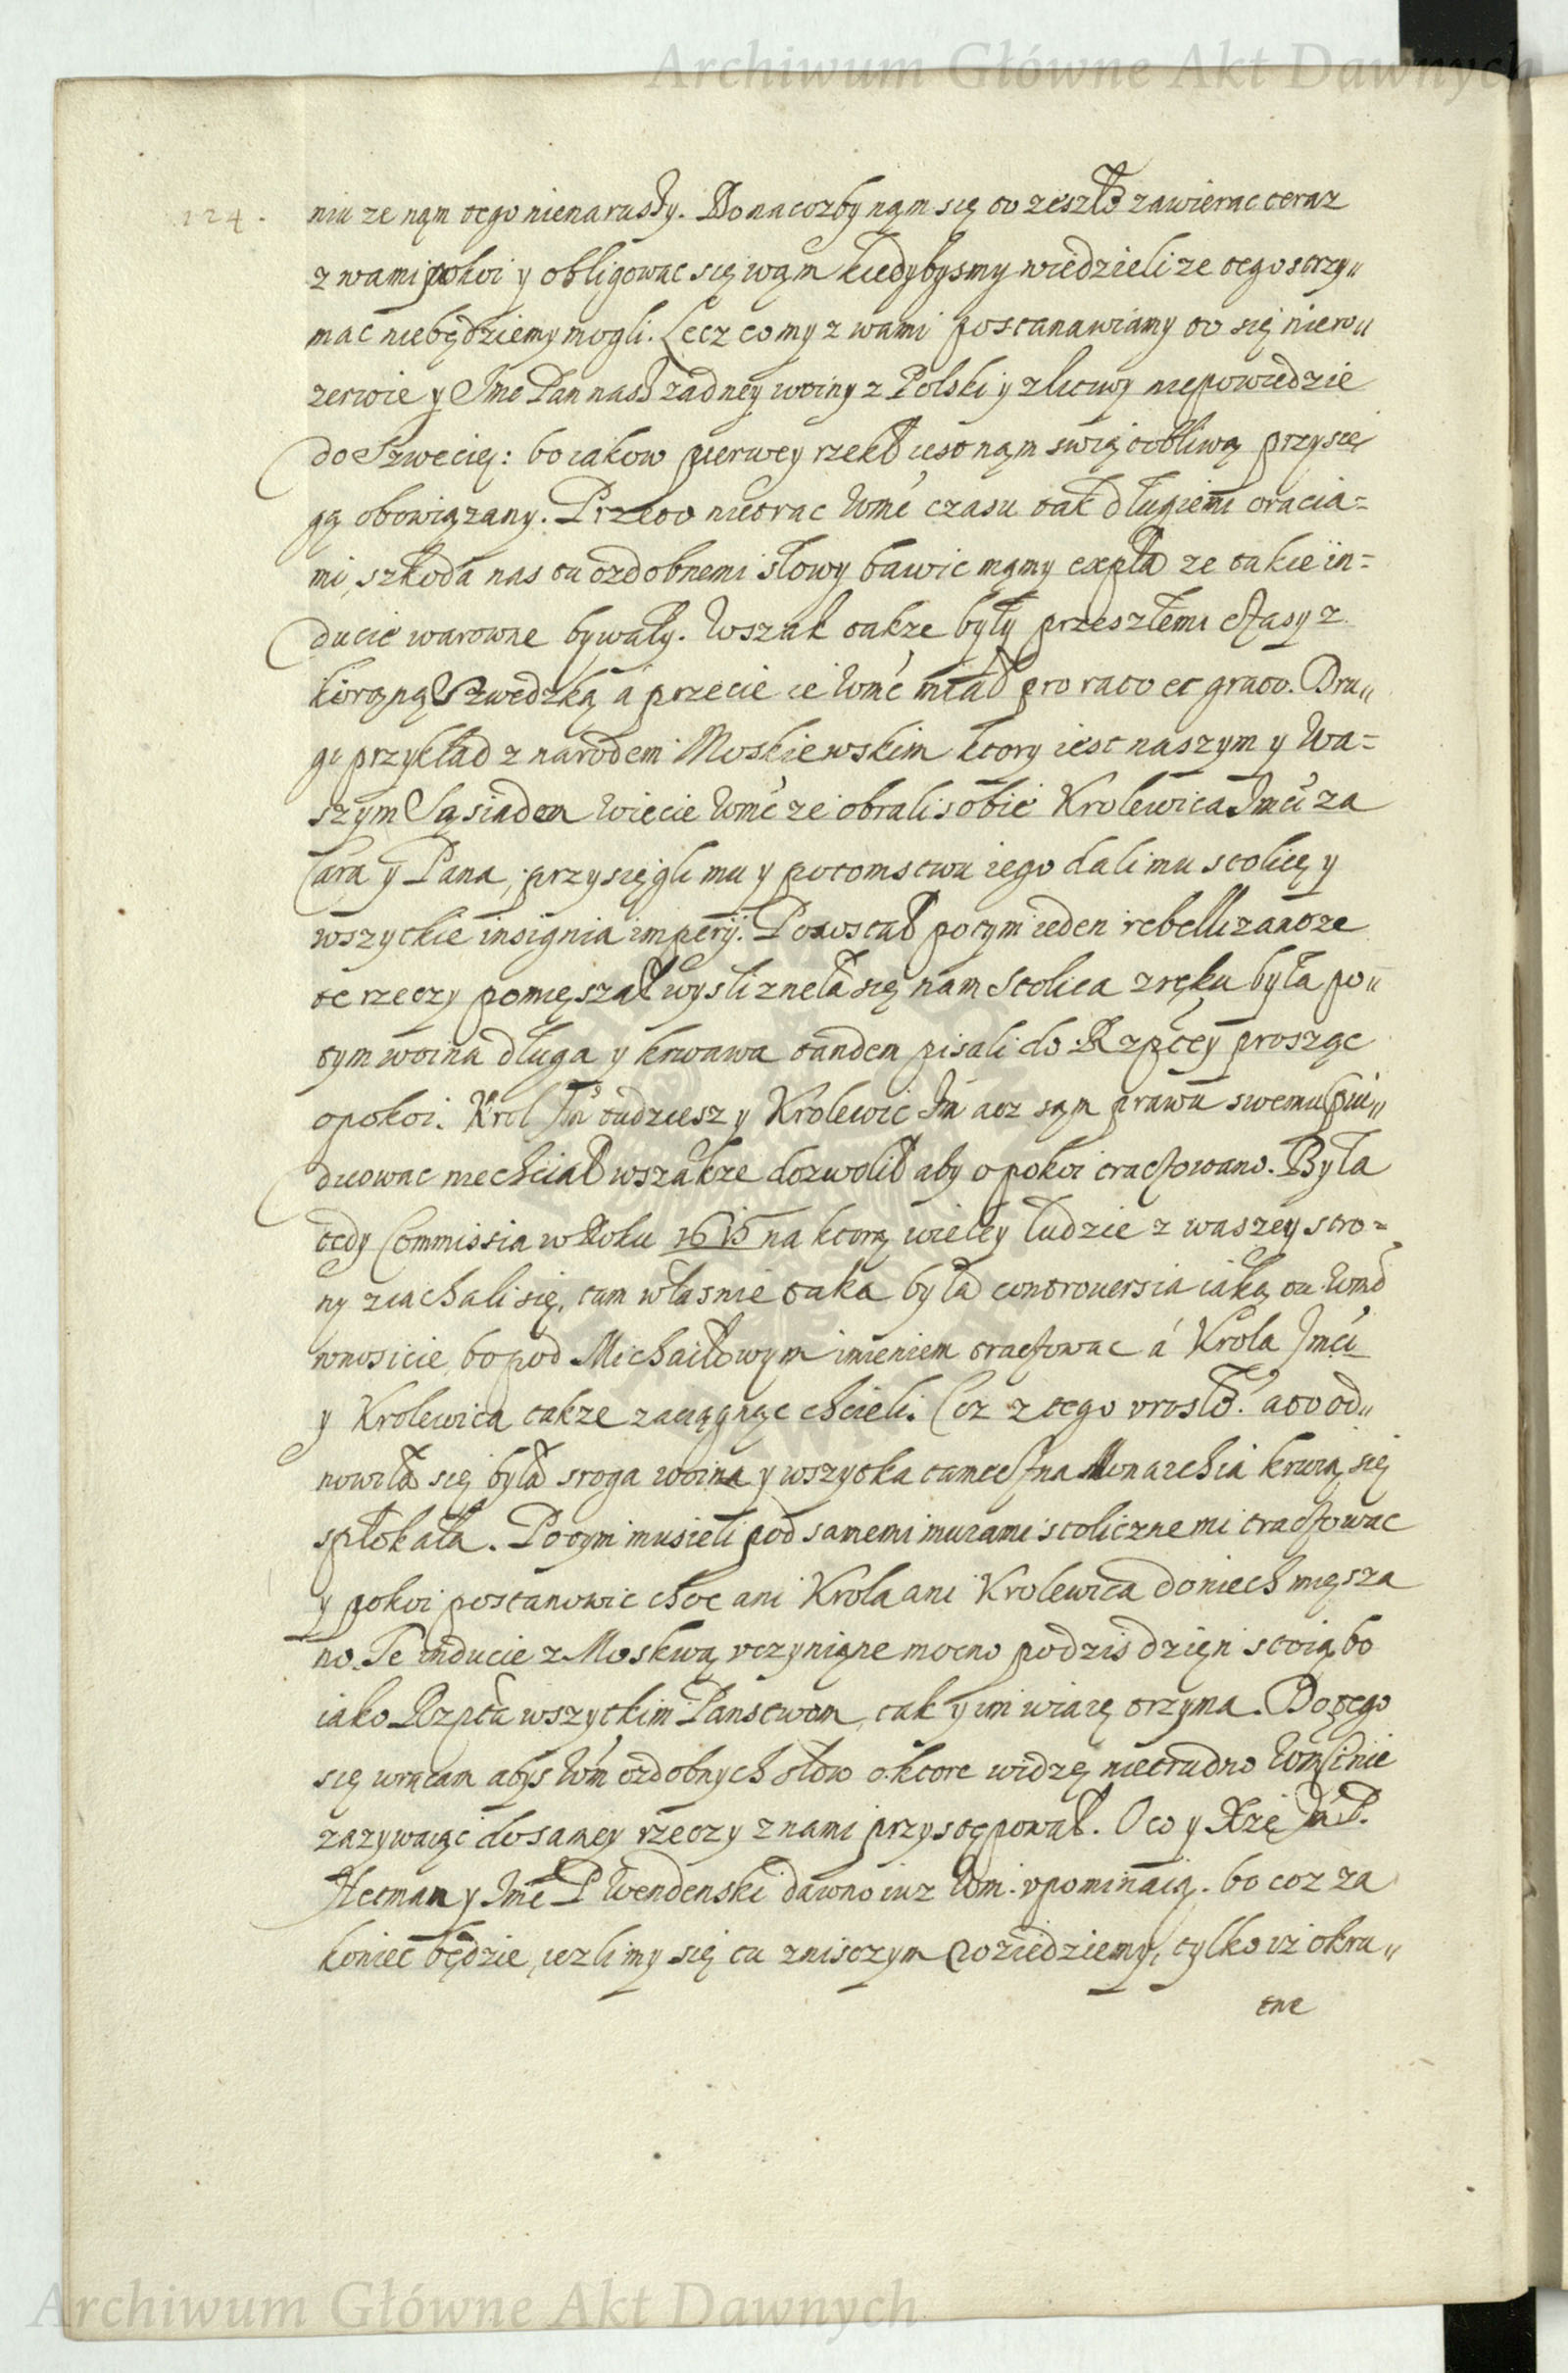 Archiwum Główne Akt Dawnych
124.
niu ze nąm tego nienaruszy. Bo na cozby nąm się to zeszło zawierac teraz
z wami pokoi y obligowac się wąm kiedybysmy wiedzieli ze tego strzy„
mac niebędziemy mogli. Lecz co my z wami postanawiamy to się niero„
zerwie y Jmć Pan nasz zadney woiny z Polski y z Litwy niepowiedzie
do Szwecię: bo iakow pierwey rzekł iest nąm swiątobliwą przysię
gą obowiązany. Przeto nietrac Wmć czasu tak długiemi oracia=
mi, szkoda nas tu ozdobnemi słowy bawic mąmy expła ze takie in=
ducie warowne bywały. Wszak takze były przeszłemi czasy z
koroną Szwedzką a przecie ie Wmć miał pro rato et grato. Dru„
gi przykład z narodem Moskiewskim ktory iest naszym y Wa=
szym Sąsiadem Wiecie Wmć ze obrali sobie Krolewica Jmći za
Cara y Pana, przysięgli mu y potomstwu iego dali mu stolicę y
wszytkie insignia imperij. Powstał potym ieden rebellizantze
te rzeczy pomięszał wyslizneła się nam stolica z ręku była po„
tym woina długa y krwawa tandem pisali do Rzptey prosząc
o pokoi. Krol Jm tudziesz y Krolewic Jm acz sąm prawu swemu
wac niechciał wszakze dozwolił aby o pokoi tractowano. Była
tedy Commissia w Roku 1615 na ktorą wielcy ludzie z waszey stro=
ny ziachali się, tam własnie taka była controuersia iaką tu Wmć
wnosicie, bo pod Michaiłowym imieniem tractowac á Krola Jmći
y Krolewica takze zaciągnąc chcieli. Coz z tego vrosło? a to od„
nowiła się była sroga woina y wszytka tameczna Monarchia krwią się
spłokała. Potym musieli pod samemi murami stolicznemi tractowac
y pokoi postanowic choc ani Krola ani Krolewica doniech mięsza
no. Te inducie z Moskwą vczynione mocno podzis dzięn stoią bo
iako Rzpta wszytkim Panstwom, tak y im wiarę trzyma. Do tego
się wracam abys Wm ozdobnych słow o ktore widzę nietrudno Wmści nie
zazywaiąc do samey rzeczy z nami przystępował. O co y Xzę Jm P.
Hetman y Jmć P Wendenski dawno iuz Wm. vpominaią. bo coz za
koniec będzie, iezli my się tu z nisczym roziedziemy, tylko iz okru„
tne
Archiwum Główne Akt Dawnych